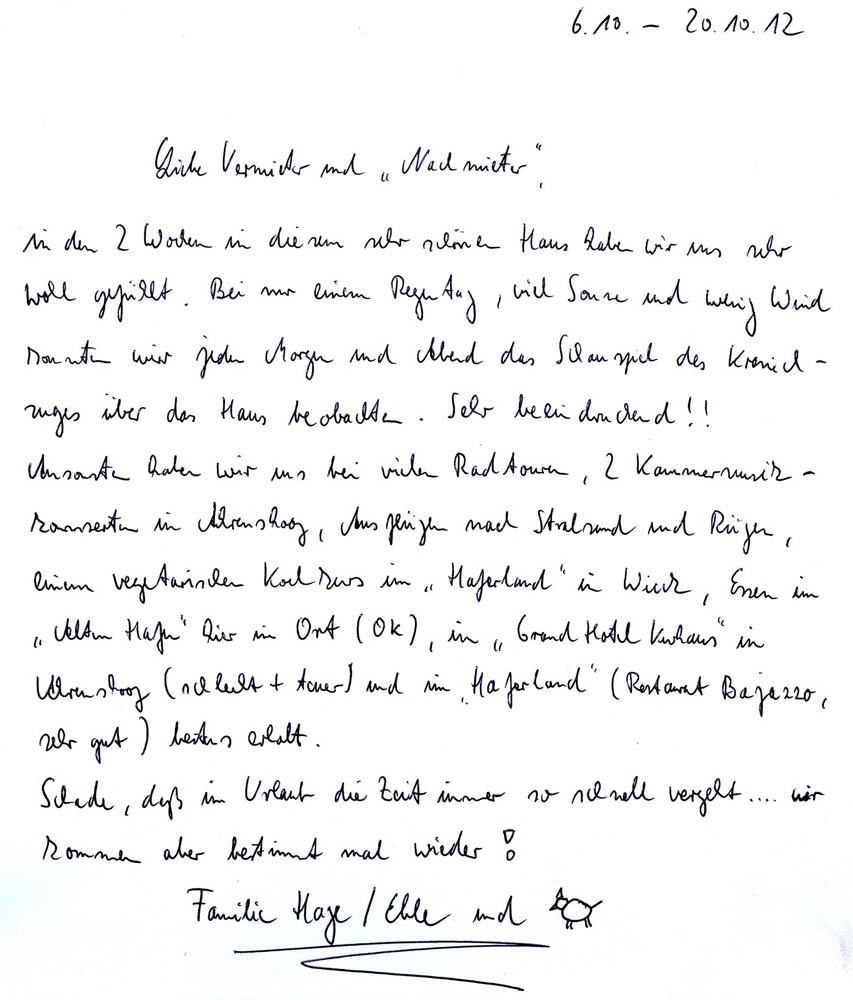 6.10. – 20.10.12
Liebe Vermieter und „Nachmieter",
in den 2 Wochen in diesem sehr schönen Haus haben wir uns sehr
wohl gefühlt. Bei nur einem Regentag, viel Sonne und wenig Wind
konnten wir jeden Morgen und Abend das Schauspiel des Kranich-
zuges über das Haus beobachten. Sehr beeindruckend!!
Ansonsten haben wir uns bei vielen Radtouren, 2 Kammermusik-
konzerten in Ahrenshoop, Ausflügen nach Stralsund und Rügen,
einem vegetarischen Kochkurs im „Haferland" in Wieck, Essen im
„Alten Hafen" hier im Ort (OK), in „Grand Hotel Kurhaus" in
Ahrenshoop (schlecht + teuer) und im „Haferland" (Restaurant Bajazzo,
sehr gut) bestens erholt.
Schade, daß im Urlaub die Zeit immer so schnell vergeht .... wir
kommen aber bestimmt mal wieder!
Familie / und